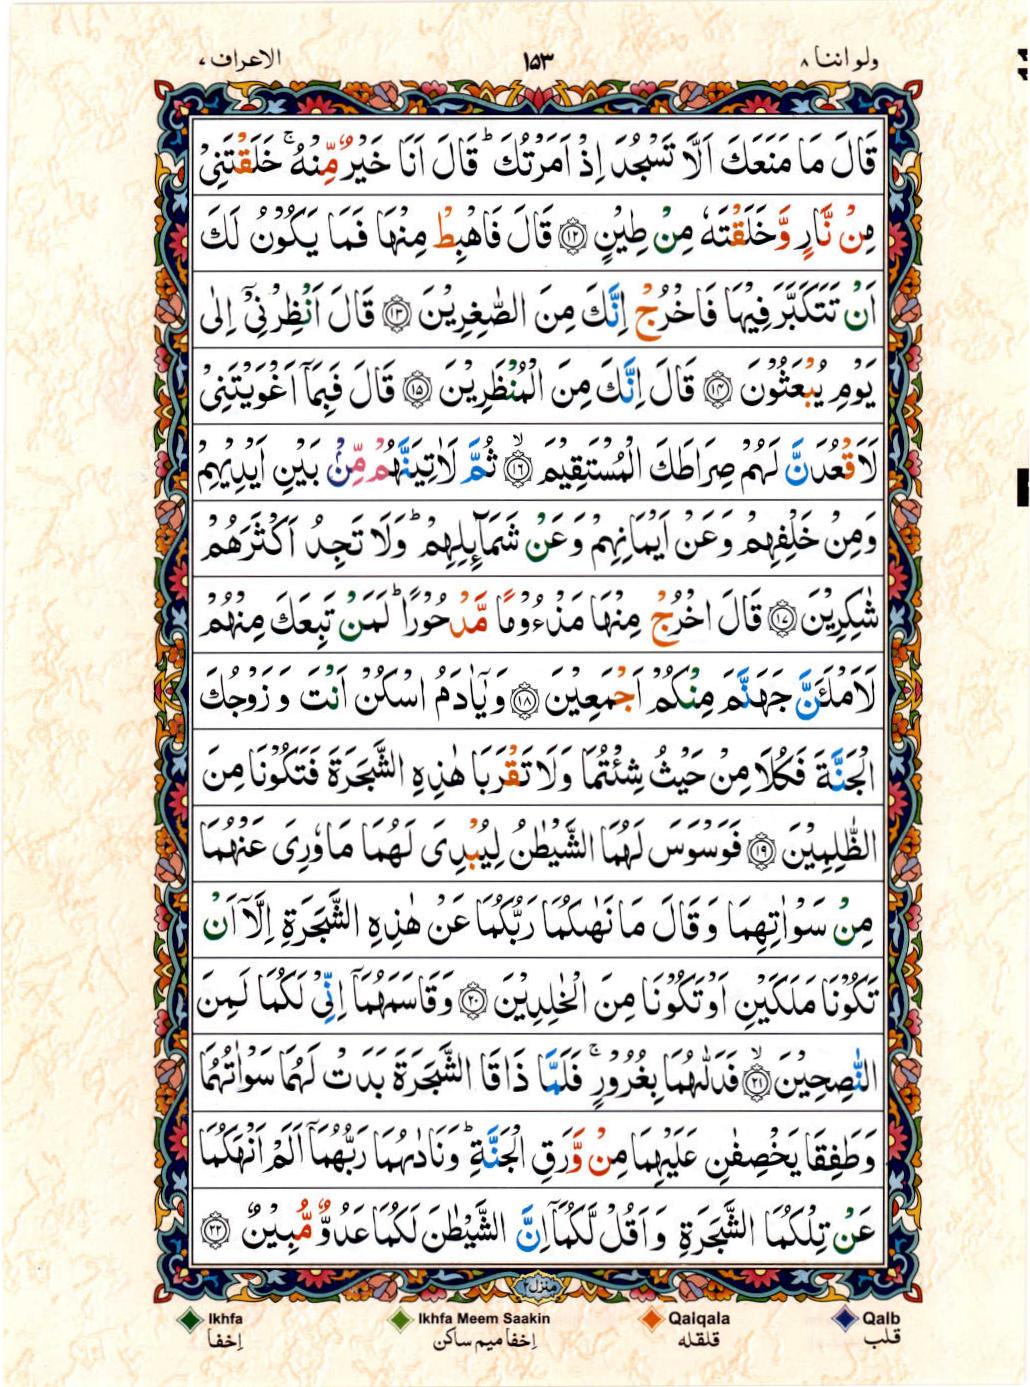 ولواننا ۸
۱۵۳
الاعراف ۷
قَالَ مَا مَنَعَكَ اَلَّا تَسْجُدَ اِذْ اَمَرْتُكَ ؕ قَالَ اَنَا خَيْرٌ مِّنْهُ ۚ خَلَقْتَنِىْ
مِنْ نَّارٍ وَّخَلَقْتَهٗ مِنْ طِيْنٍ ۝۱۲ قَالَ فَاهْبِطْ مِنْهَا فَمَا يَكُوْنُ لَكَ
اَنْ تَتَكَبَّرَ فِيْهَا فَاخْرُجْ اِنَّكَ مِنَ الصّٰغِرِيْنَ ۝۱۳ قَالَ اَنْظِرْنِىْۤ اِلٰى
يَوْمِ يُبْعَثُوْنَ ۝۱۴ قَالَ اِنَّكَ مِنَ الْمُنْظَرِيْنَ ۝۱۵ قَالَ فَبِمَاۤ اَغْوَيْتَنِىْ
لَاَقْعُدَنَّ لَهُمْ صِرَاطَكَ الْمُسْتَقِيْمَ ۙ۝۱۶ ثُمَّ لَاٰتِيَنَّهُمْ مِّنْۢ بَيْنِ اَيْدِيْهِمْ
وَمِنْ خَلْفِهِمْ وَعَنْ اَيْمَانِهِمْ وَعَنْ شَمَآئِلِهِمْ ؕ وَلَا تَجِدُ اَكْثَرَهُمْ
شٰكِرِيْنَ ۝۱۷ قَالَ اخْرُجْ مِنْهَا مَذْءُوْمًا مَّدْحُوْرًا ؕ لَمَنْ تَبِعَكَ مِنْهُمْ
لَاَمْلَئَنَّ جَهَنَّمَ مِنْكُمْ اَجْمَعِيْنَ ۝۱۸ وَيٰۤاٰدَمُ اسْكُنْ اَنْتَ وَ زَوْجُكَ
الْجَنَّةَ فَكُلَا مِنْ حَيْثُ شِئْتُمَا وَلَا تَقْرَبَا هٰذِهِ الشَّجَرَةَ فَتَكُوْنَا مِنَ
الظّٰلِمِيْنَ ۝۱۹ فَوَسْوَسَ لَهُمَا الشَّيْطٰنُ لِيُبْدِىَ لَهُمَا مَا وٗرِىَ عَنْهُمَا
مِنْ سَوْاٰتِهِمَا وَقَالَ مَا نَهٰىكُمَا رَبُّكُمَا عَنْ هٰذِهِ الشَّجَرَةِ اِلَّاۤ اَنْ
تَكُوْنَا مَلَكَيْنِ اَوْ تَكُوْنَا مِنَ الْخٰلِدِيْنَ ۝۲۰ وَقَاسَمَهُمَاۤ اِنِّىْ لَكُمَا لَمِنَ
النّٰصِحِيْنَ ۙ۝۲۱ فَدَلّٰىهُمَا بِغُرُوْرٍ ۚ فَلَمَّا ذَاقَا الشَّجَرَةَ بَدَتْ لَهُمَا سَوْاٰتُهُمَا
وَطَفِقَا يَخْصِفٰنِ عَلَيْهِمَا مِنْ وَّرَقِ الْجَنَّةِ ؕ وَنَادٰىهُمَا رَبُّهُمَاۤ اَلَمْ اَنْهَكُمَا
عَنْ تِلْكُمَا الشَّجَرَةِ وَاَقُلْ لَّكُمَاۤ اِنَّ الشَّيْطٰنَ لَكُمَا عَدُوٌّ مُّبِيْنٌ ۝۲۲
منزل ۲
Ikhfa
Ikhfa Meem Saakin
Qalqala
Qalb
اِخفا
اِخفا میم ساکن
قلقله
قلب